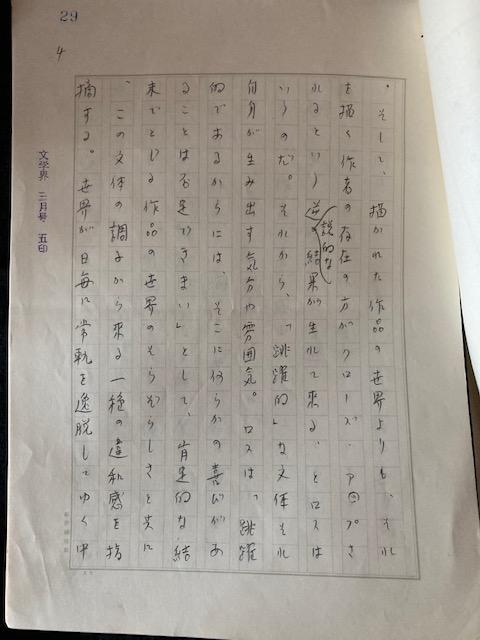 29
4
。そして、描かれた作品の世界よりも、それ
を描く作者の存在の方がクローズ・アップさ
れるという逆説的な結果が生れて来る、とロスは
いうのだ。それから、「跳躍的」な文体それ
自身が生み出す気分や雰囲気。ロスは「跳躍
的であるからには、そこに何らかの喜びがあ
ることは否定できまい」として、肯定的な結
末でとじる作品の世界のそらぞらしさと共に
、この文体の調子から来る一種の違和感を指
摘する。世界が日毎に常軌を逸脱してゆく中
文学界 三月号 五印